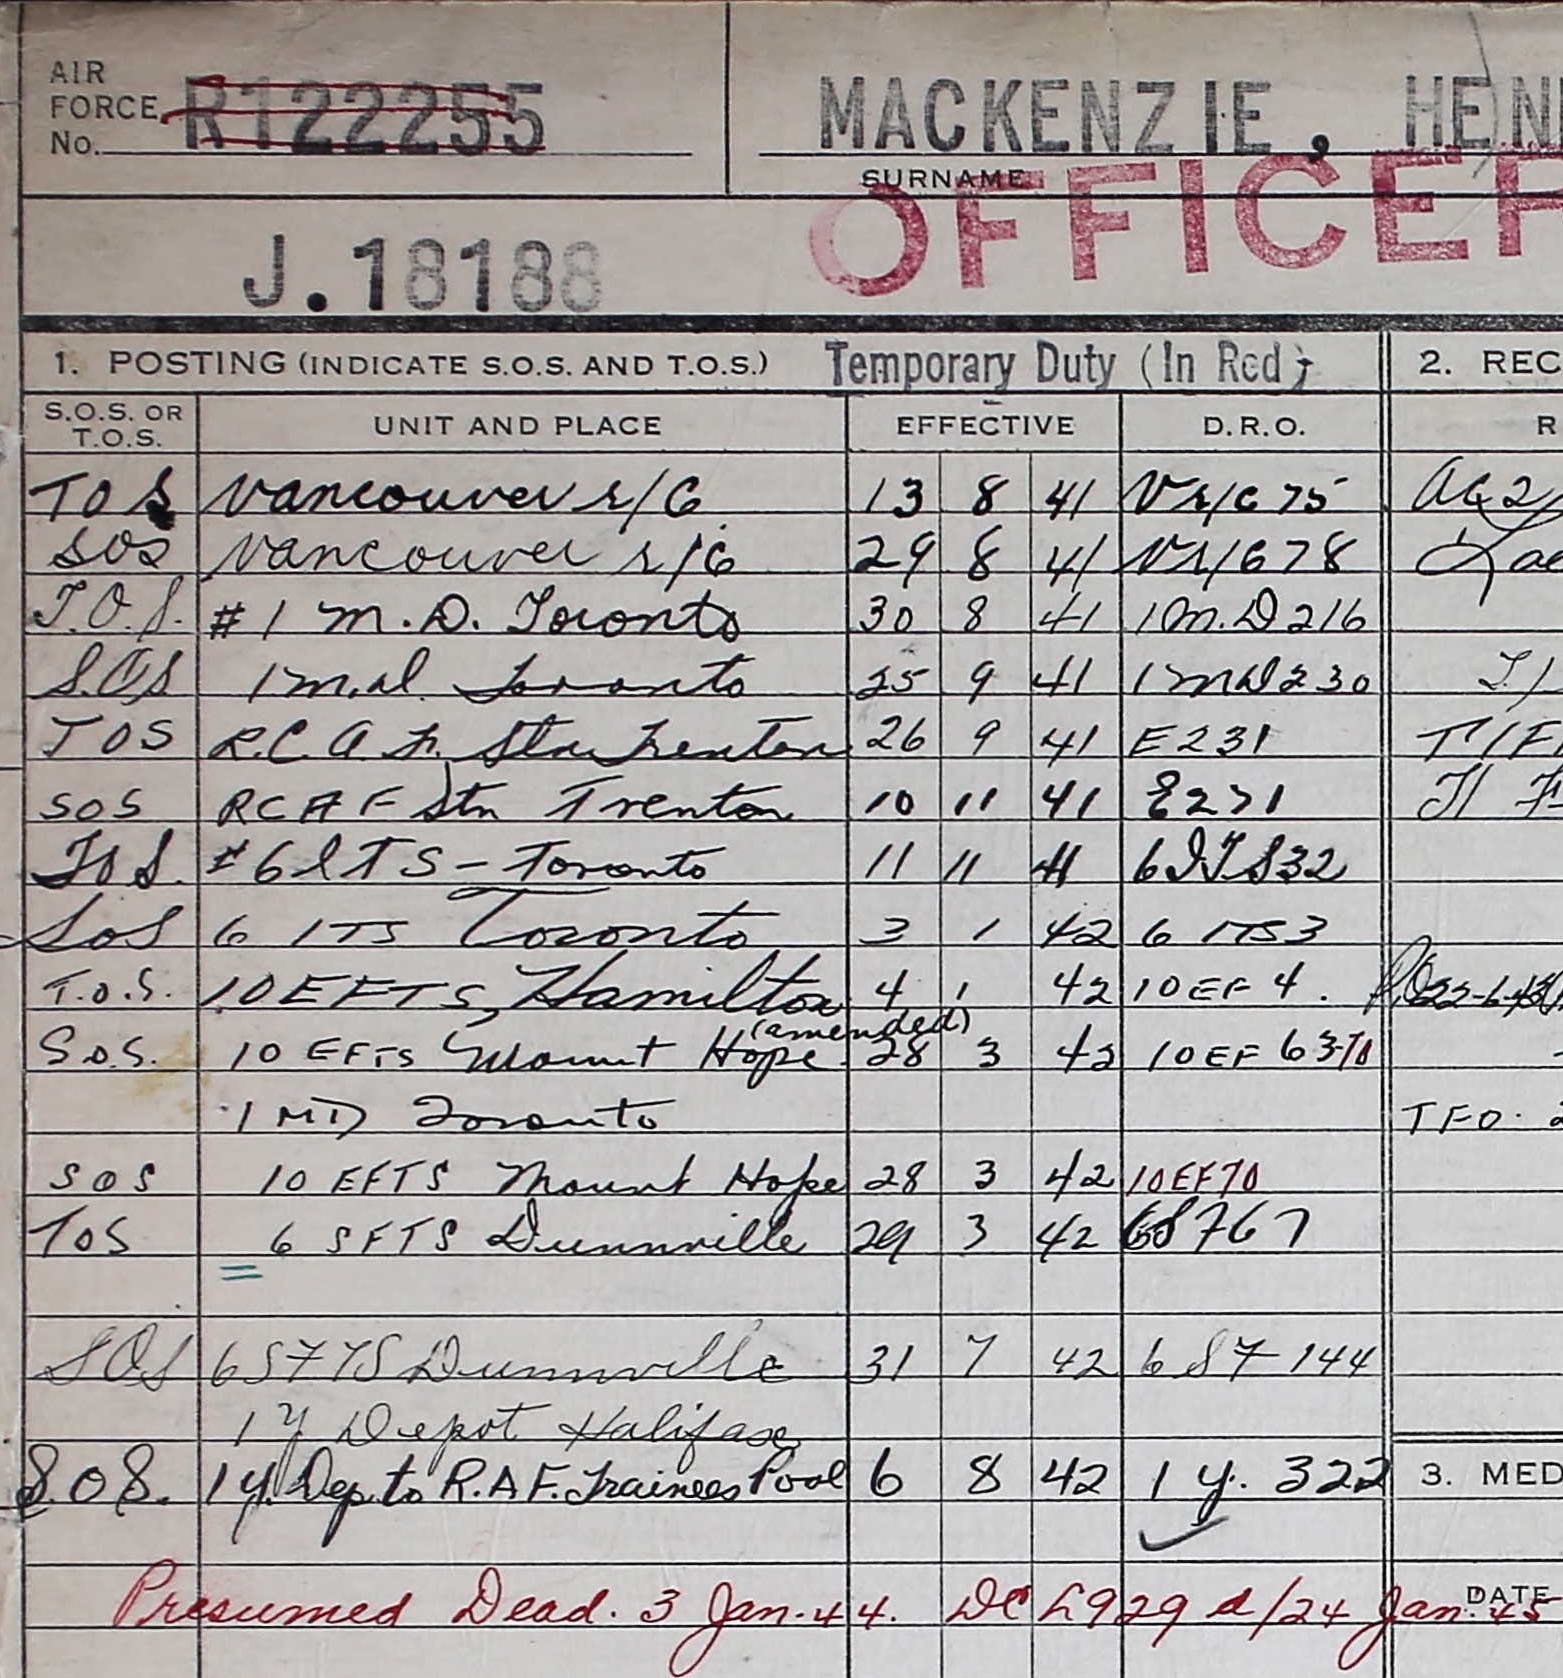 AIR
FORCE
No. R122255
MACKENZIE, HEN
SURNAME
OFFICER
J.18188
1. POSTING (INDICATE S.O.S. AND T.O.S.) Temporary Duty (In Red) 2. REC
S.O.S. OR T.O.S. UNIT AND PLACE EFFECTIVE D.R.O. R
TOS Vancouver r/c 13 8 41 Vr/c 75 AC2
SOS Vancouver r/c 29 8 41 Vr/c 78 Lac
T.O.S. #1 M.D. Toronto 30 8 41 1 M.D 216
S.O.S 1 M.D. Toronto 25 9 41 1 MD 230
TOS R.C.A.F. Stn Trenton 26 9 41 E231
SOS RCAF Stn Trenton 10 11 41 E271
TOS. #6 ITS - Toronto 11 11 41 6 ITS 32
SOS 6 ITS Toronto 3 1 42 6 ITS 3
T.O.S. 10 EFTS, Hamilton 4 1 42 10 EF 4.
(amended)
S.O.S. 10 EFTS Mount Hope 28 3 42 10 EF 63-70
1 MD Toronto TFO.
SOS 10 EFTS Mount Hope 28 3 42 10EF70
TOS 6 SFTS Dunnville 29 3 42 6SF67
SOS 6 SFTS Dunnville 31 7 42 6 SF 144
1 Y Depot Halifax
S.O.S. 1 Y. Dep. to R.A.F. Trainees Pool 6 8 42 1 Y. 322 3. MED
Presumed Dead. 3 Jan. 44. DC L929 d/24 Jan. 45
DATE